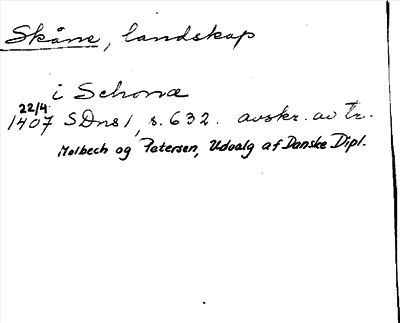 Skåne, landskap
i Schonæ
22/4
1407 SDns 1, s. 632. avskr. av tr.
Molbech og Petersen, Udvalg af Danske Dipl.